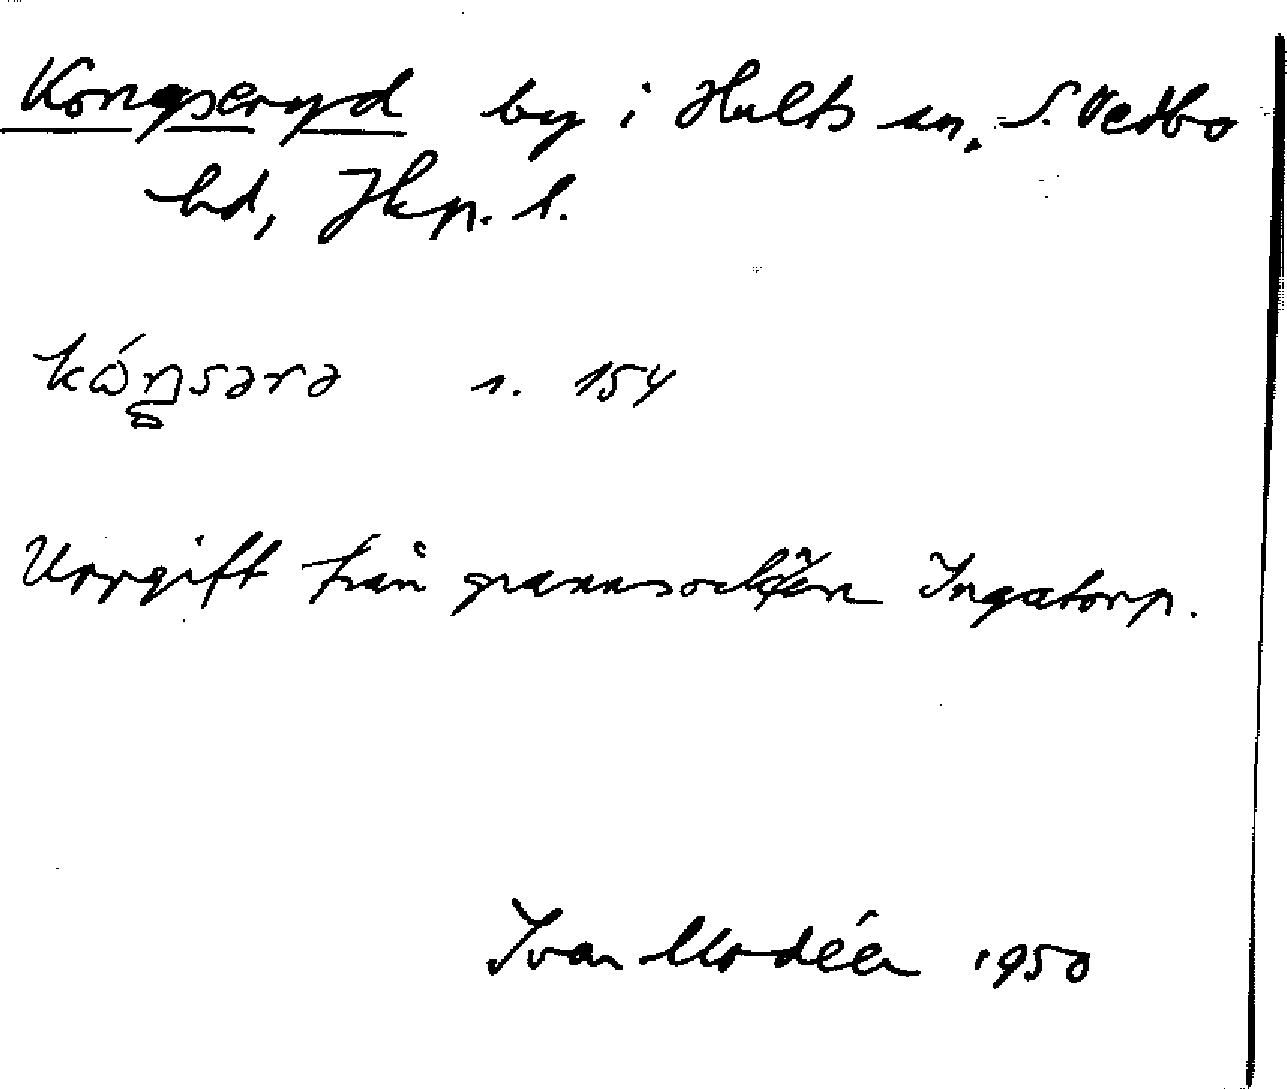 Kongseryd by i Hults sn. S. Vedbo
hd, Jkp. l.
kóŋsərə s. 154
Uppgift från grannsocknen Ingatorp.
Ivar Modéer 1950